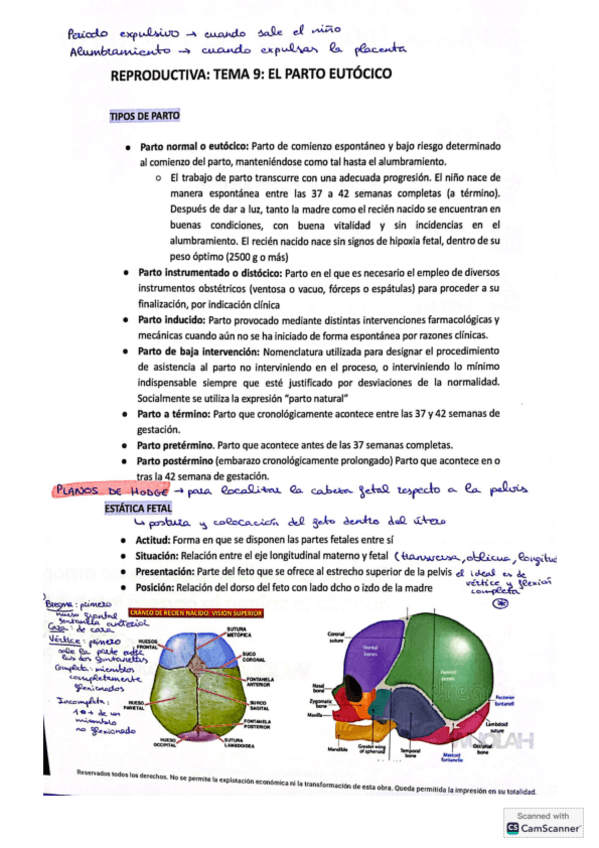 Periodo expulsivo → cuando sale el niño
Alumbramiento → cuando expulsas la placenta
REPRODUCTIVA: TEMA 9: EL PARTO EUTÓCICO
TIPOS DE PARTO
● Parto normal o eutócico: Parto de comienzo espontáneo y bajo riesgo determinado
al comienzo del parto, manteniéndose como tal hasta el alumbramiento.
○ El trabajo de parto transcurre con una adecuada progresión. El niño nace de
manera espontánea entre las 37 a 42 semanas completas (a término).
Después de dar a luz, tanto la madre como el recién nacido se encuentran en
buenas condiciones, con buena vitalidad y sin incidencias en el
alumbramiento. El recién nacido nace sin signos de hipoxia fetal, dentro de su
peso óptimo (2500 g o más)
● Parto instrumentado o distócico: Parto en el que es necesario el empleo de diversos
instrumentos obstétricos (ventosa o vacuo, fórceps o espátulas) para proceder a su
finalización, por indicación clínica
● Parto inducido: Parto provocado mediante distintas intervenciones farmacológicas y
mecánicas cuando aún no se ha iniciado de forma espontánea por razones clínicas.
● Parto de baja intervención: Nomenclatura utilizada para designar el procedimiento
de asistencia al parto no interviniendo en el proceso, o interviniendo lo mínimo
indispensable siempre que esté justificado por desviaciones de la normalidad.
Socialmente se utiliza la expresión "parto natural"
● Parto a término: Parto que cronológicamente acontece entre las 37 y 42 semanas de
gestación.
● Parto pretérmino. Parto que acontece antes de las 37 semanas completas.
● Parto postérmino (embarazo cronológicamente prolongado) Parto que acontece en o
tras la 42 semana de gestación.
PLANOS DE HODGE → para localizar la cabeza fetal respecto a la pelvis
ESTÁTICA FETAL
↳ postura y colocación del feto dentro del útero
● Actitud: Forma en que se disponen las partes fetales entre sí
● Situación: Relación entre el eje longitudinal materno y fetal (transversa, oblicua, longitud
● Presentación: Parte del feto que se ofrece al estrecho superior de la pelvis el ideal es de
vértice y flexión
completa
● Posición: Relación del dorso del feto con lado dcho o izdo de la madre
Bregma: primero
hueso frontal
fontanella anterior
Cara: de cara
Vértice: primero
sale la parte entre
las dos fontanellas
Completa: miembros
completamente
flexionados
Incompleta:
1 o + de un
miembro
no flexionado
CRÁNEO DE RECIEN NACIDO: VISIÓN SUPERIOR
HUESOS
FRONTAL
SUTURA
METÓPICA
SUCO
CORONAL
FONTANELA
ANTERIOR
HUESO
PARIETAL
SURCO
SAGITAL
FONTANELA
POSTERIOR
HUESO
OCCIPITAL
SUTURA
LAMBDOIDEA
Coronal
suture
Frontal
bones
Parietal
bones
Nasal
bone
Zygomatic
bone
Maxilla
Mandible
Greater wing
of sphenoid
Temporal
bone
Mastoid
fontanelle
Occipital
bone
Lambdoid
suture
Posterior
fontanell
WUOLAH
Reservados todos los derechos. No se permite la explotación económica ni la transformación de esta obra. Queda permitida la impresión en su totalidad.
Scanned with
CS CamScanner